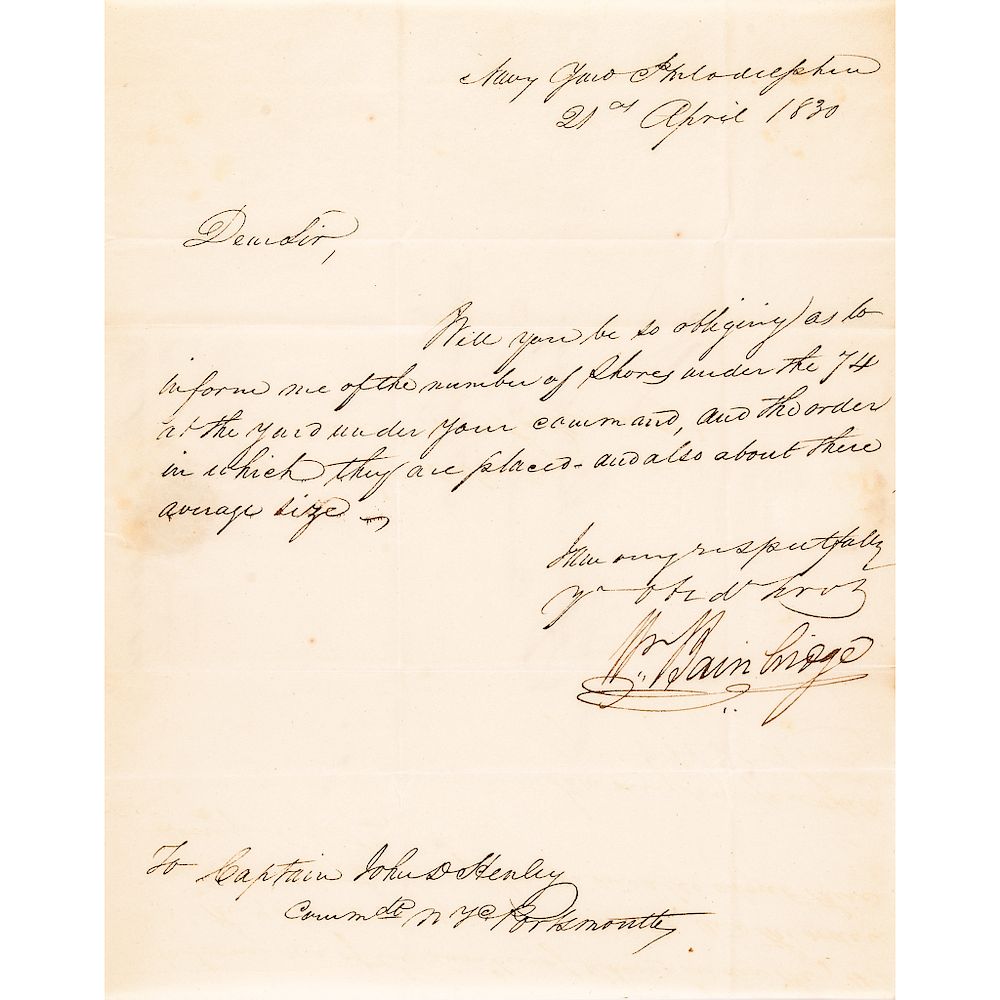 Navy Yard Philadelphia
21st April 1830
Dear Sir,
Will you be so obliging as to
inform me of the number of Shores under the 74
at the yard under your command, and the order
in which they are placed - and also about there
average size
I am very respectfully
yr obedt Servt
Wm. Bainbridge
To Captain John D Henley
Commdt N Yd Portsmouth